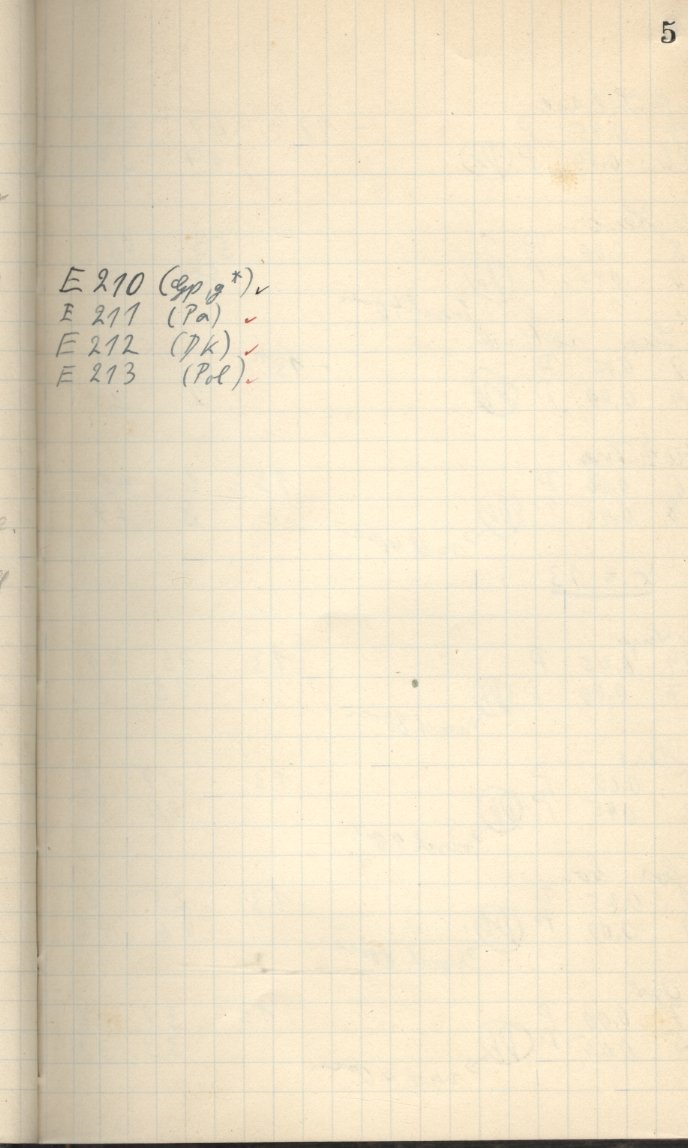 5
E 210 (Gp, g*) ✓
E 211 (Pa) ✓
E 212 (DK) ✓
E 213 (Pol) ✓